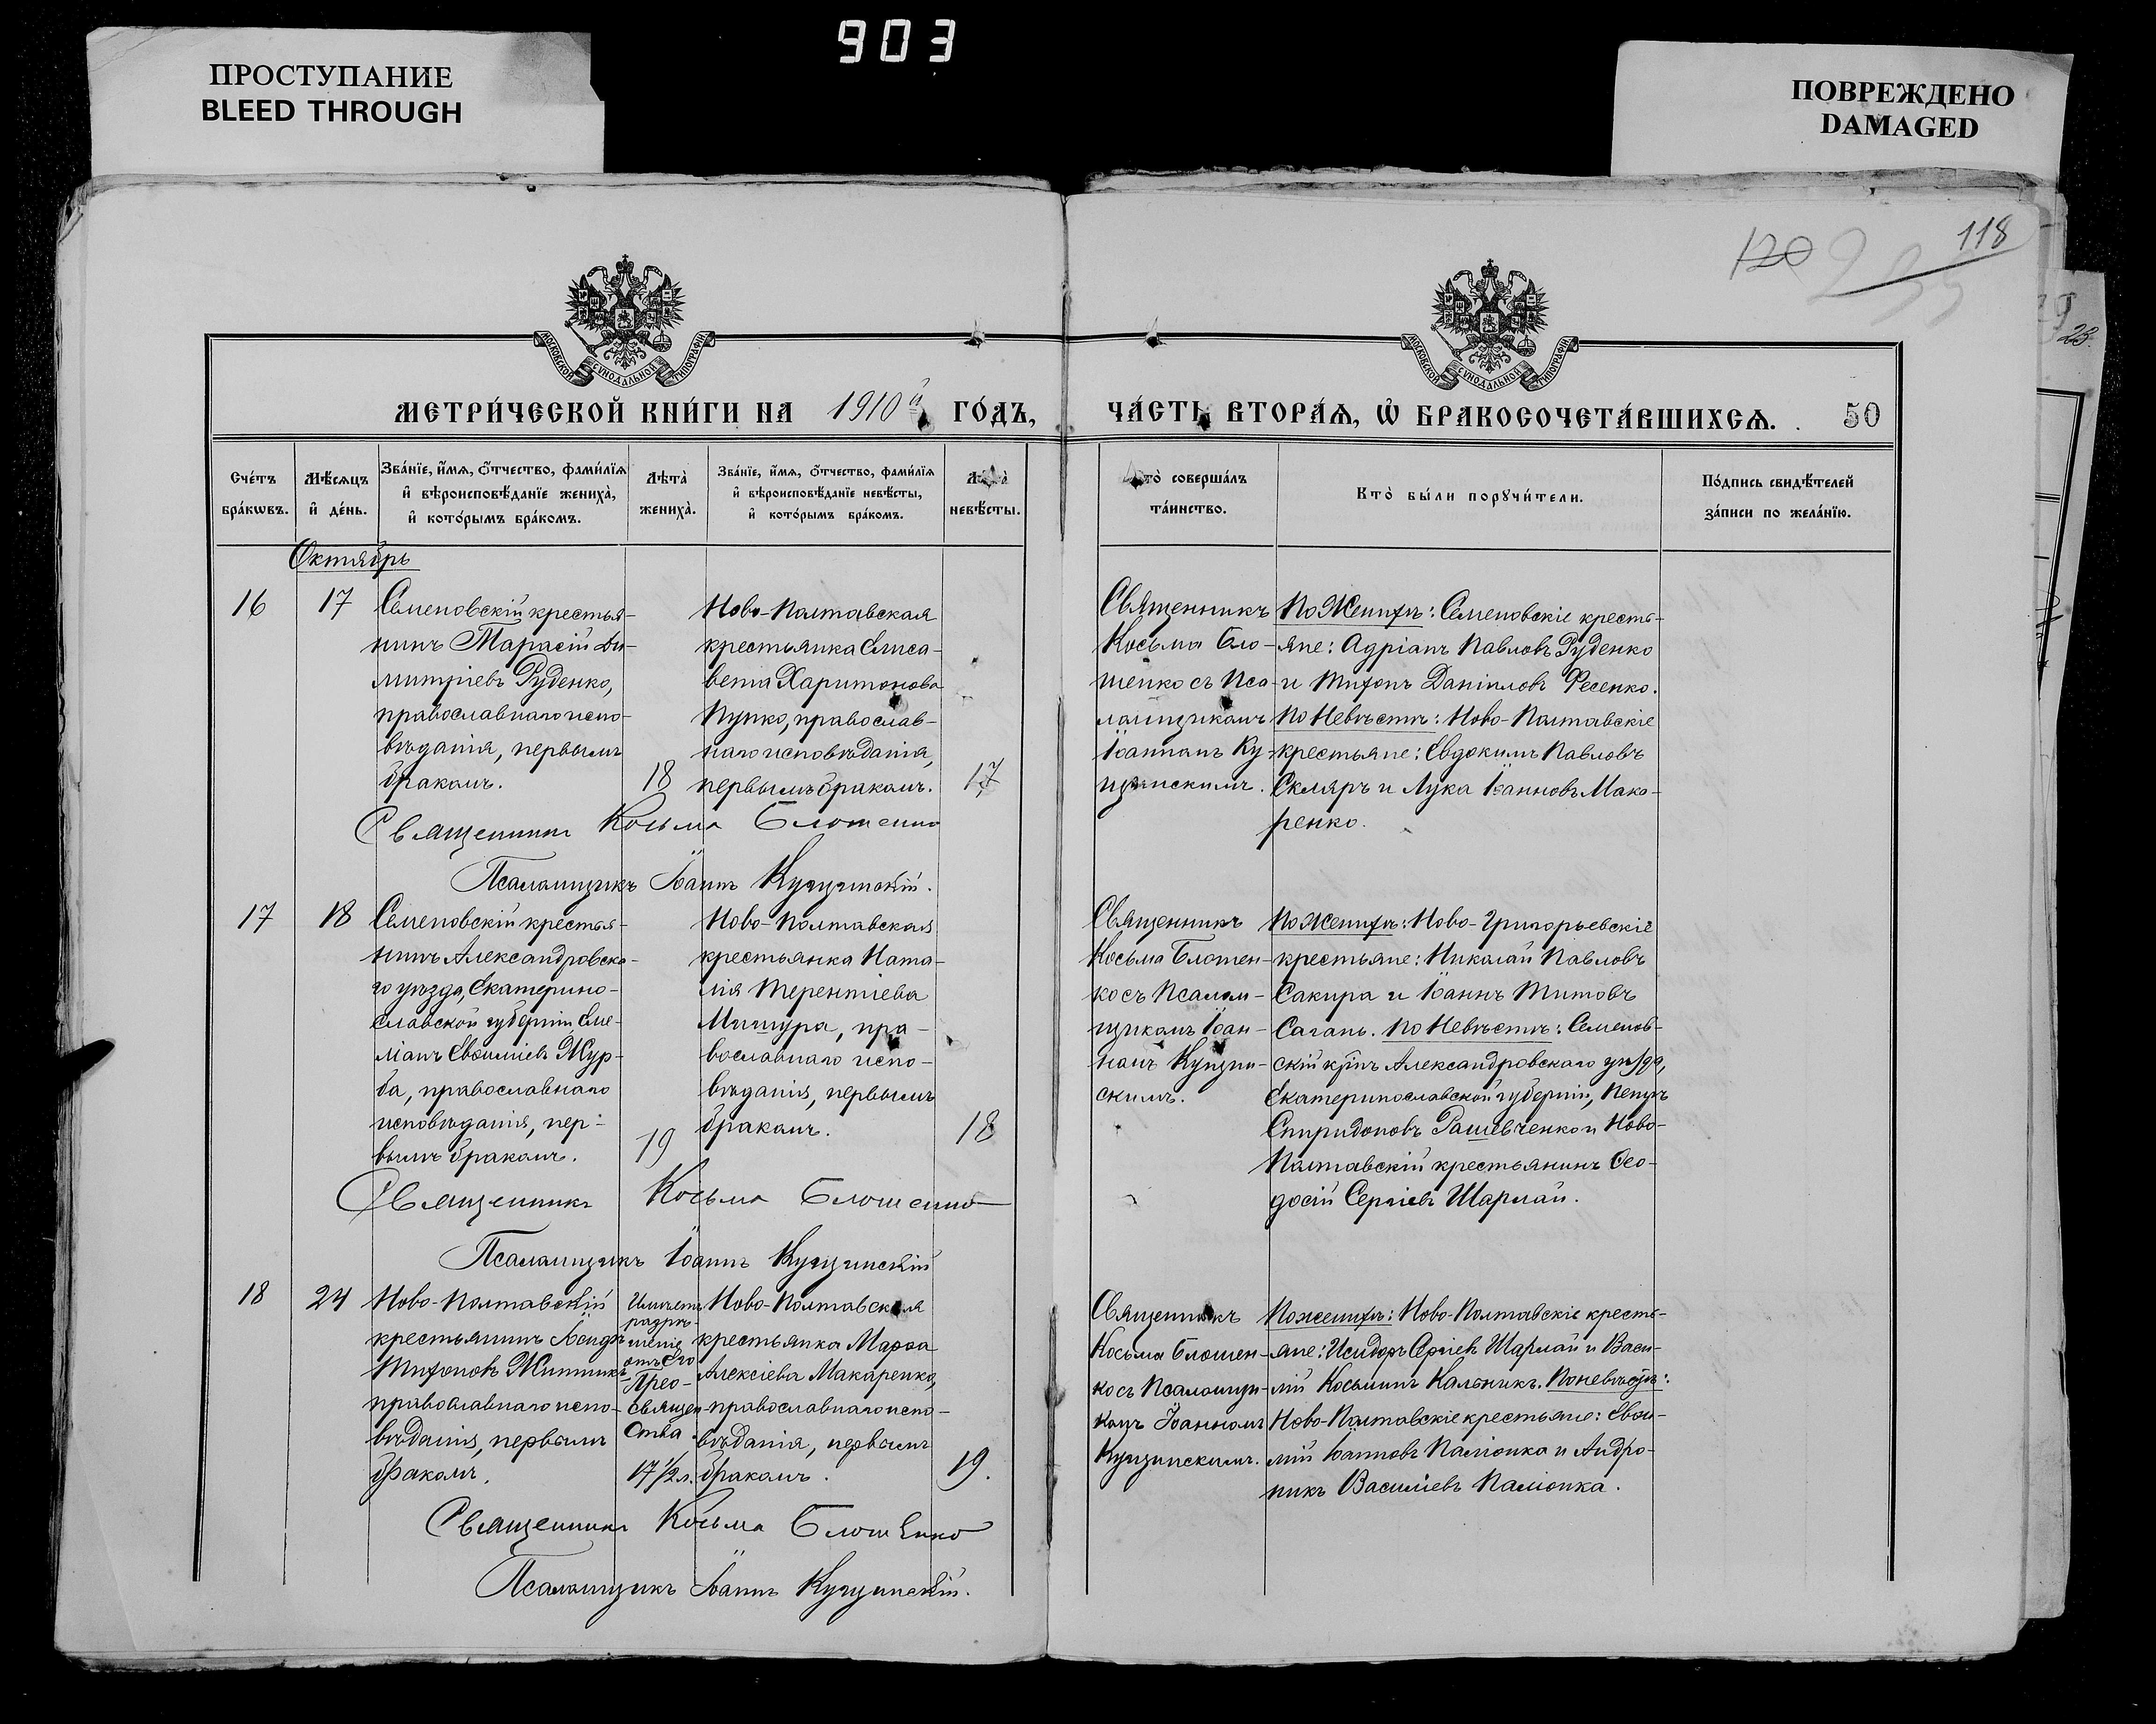 903
ПРОСТУПАНИЕ
BLEED THROUGH
ПОВРЕЖДЕНО
DAMAGED
118
120
МОСКОВСКОЙ СУНОДАЛЬНОЙ ТИПОГРАФІИ
МОСКОВСКОЙ СУНОДАЛЬНОЙ ТИПОГРАФІИ
МЕТРИ́ЧЕСКОЙ КНИ́ГИ НА 1910й ГО́ДЪ,
ЧА́СТЬ ВТОРА́Ѧ, Ѡ БРАКОСОЧЕТА́ВШИХСѦ. 50
Сче́тъ
бра́кѡвъ.
Мѣ́сѧцъ
и҆ де́нь.
Зва́нїе, и҆́мѧ, ѻ҆́тчество, фами́лїѧ
и҆ вѣроисповѣ́данїе жениха̀,
и҆ кото́рымъ бра́комъ.
Лѣта̀
жениха̀.
Зва́нїе, и҆́мѧ, ѻ҆́тчество, фами́лїѧ
и҆ вѣроисповѣ́данїе невѣ́сты,
и҆ кото́рымъ бра́комъ.
Лѣта̀
невѣ́сты.
Кто̀ соверша́лъ
та́инство.
Кто̀ бы́ли порꙋчи́тели.
По́дпись свидѣ́телей
за́писи по жела́нїю.
Октябрь
16
17
Семеповскій крестья-
нинъ Тарасій Ди-
митріевъ Руденко,
православнаго испо-
вѣданія, первымъ
бракомъ.
18
Ново-Полтавская
крестьянка Елиса-
вета Харитонова
Пупко, православ-
наго исповѣданія,
первымъ бракомъ.
17
Священникъ
Косьма Бло-
шенко съ Пса-
ломщикомъ
Іоанномъ Ку-
щинскимъ.
По Женихѣ: Семеновскіе кресть-
яне: Адріанъ Павловъ Руденко
и Тихонъ Даніиловъ Фесенко.
По Невѣстѣ: Ново-Полтавскіе
крестьяне: Евдокимъ Павловъ
Скляръ и Лука Іоанновъ Мака-
ренко.
Священникъ Косьма Блошенко
Псаломщикъ Іоаннъ Кущинскій.
17
18
Семеновскій крестья-
нинъ Александровска-
го уѣзда, Екатерино-
славской губерніи Еме-
ліанъ Евѳиміевъ Жур-
ба, православнаго
исповѣданія, пер-
вымъ бракомъ.
19
Ново-Полтавская
крестьянка Ната-
лія Терентіева
Мишура, пра-
вославнаго испо-
вѣданія, первымъ
бракомъ.
18
Священникъ
Косьма Блошен-
ко съ Псалом-
щикомъ Іоан-
номъ Кущин-
скимъ.
По Женихѣ: Ново-Григорьевскіе
крестьяне: Николай Павловъ
Сакира и Іоаннъ Титовъ
Саганъ. По Невѣстѣ: Семенов-
скій кр̃нъ Александровскаго уѣзда,
Екатеринославской губерніи, Петръ
Спиридоновъ Рашевченко и Ново-
Полтавскій крестьянинъ Ѳео-
досій Сергіевъ Шарлай.
Священникъ Косьма Блошенко
Псаломщикъ Іоаннъ Кущинскій
18
24
Ново-Полтавскій
крестьянинъ
Тихоновъ Житникъ
православнаго испо-
вѣданія, первымъ
бракомъ.
Имѣетъ
разрѣ-
шеніе
отъ Его
Прео-
священ-
ства
17½ л.
Ново-Полтавская
крестьянка Марѳа
Алексіева Макаренко,
православнаго испо-
вѣданія, первымъ
бракомъ.
19.
Священникъ
Косьма Блошен-
ко съ Псаломщи-
комъ Іоанномъ
Кущинскимъ.
По женихѣ: Ново-Полтавскіе кресть-
яне: Исидоръ Сергіевъ Шарлай и Васи-
лій Косьминъ Кальникъ. По невѣстѣ:
Ново-Полтавскіе крестьяне: Евѳи-
мій Іоанновъ Паліонка и Андро-
никъ Василіевъ Паліонка.
Священникъ Косьма Блошенко
Псаломщикъ Іоаннъ Кущинскій.